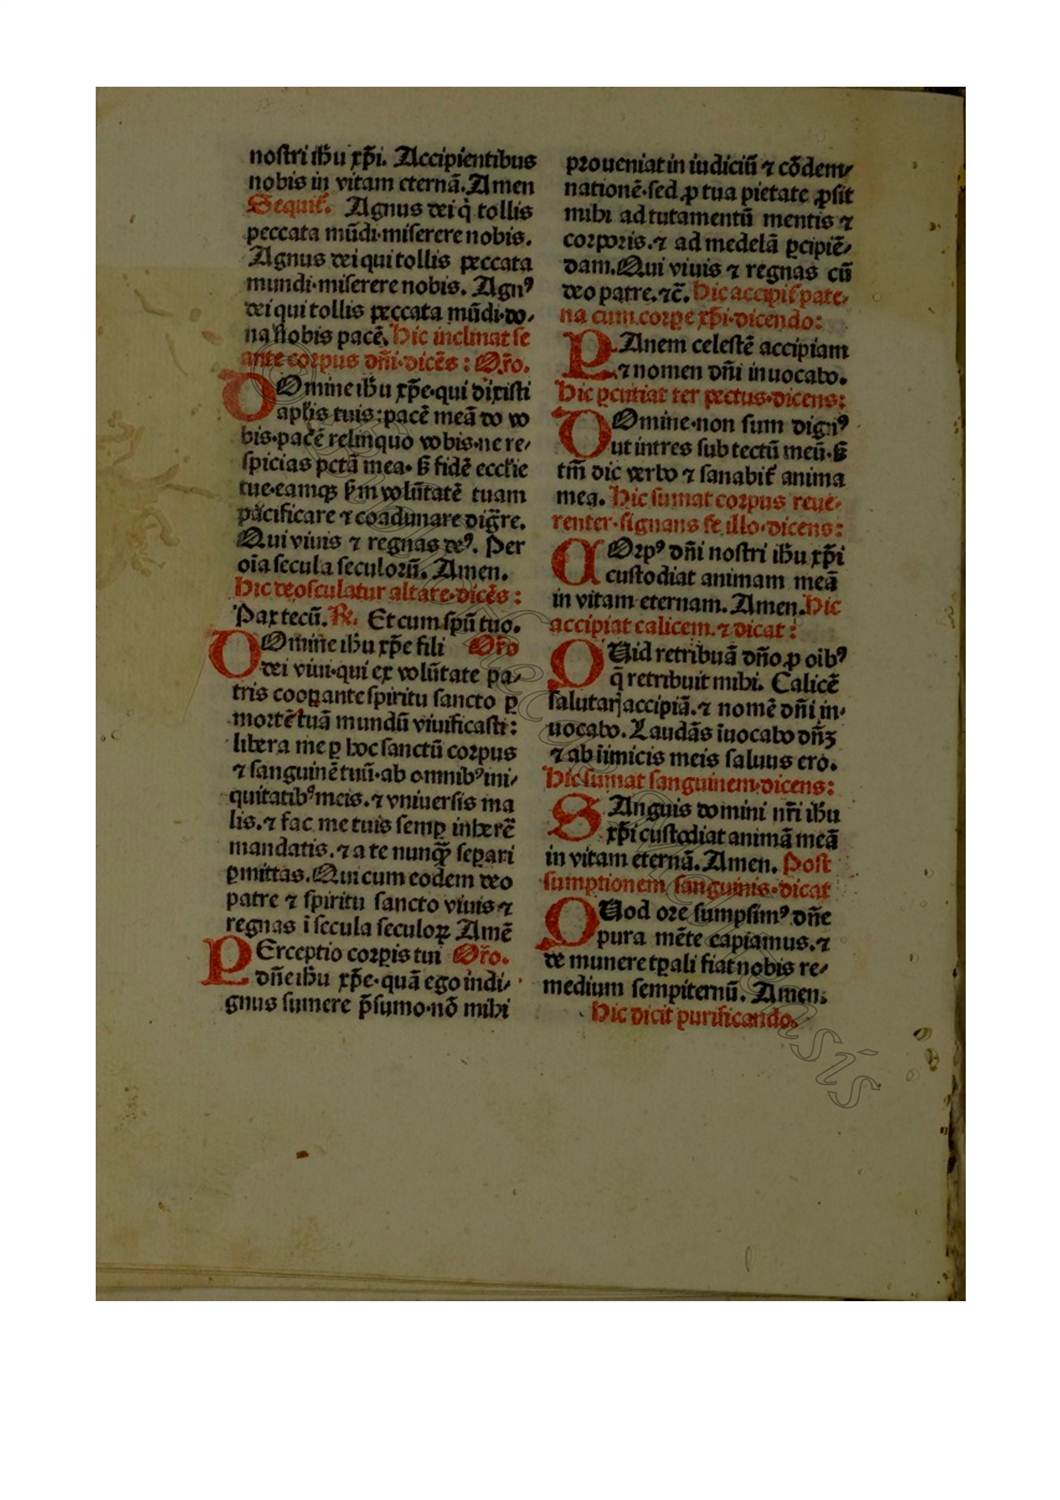 nostri ih̄u xp̄i. Accipientibus
nobis in vitam eternā. Amen
Sequit᷑. Agnus dei q̇ tollis
peccata mūdi·miserere nobis.
Agnus dei qui tollis peccata
mundi·miserere nobis. Agnꝰ
dei qui tollis peccata mūdi·do-
na nobis pacē. Hic inclinat se
ante corpus dn̄i·dicēs : Or̄o.
DOmine ih̄u xp̄e·qui dixisti
aplīs tuis:pacē meā do vo
bis·pacē relinquo vobis·ne re-
spicias pctā mea· ß fidē eccľie
tue·eamqꝫ ẜm volūtatē tuam
pacificare ⁊ coadunare dig̃re.
Qui viuis ⁊ regnas deꝰ. Per
oīa secula seculorū. Amen.
Hic deosculatur altare·dicēs :
Pax tecū. ℟. Et cum sp̄u tuo.
DOmine ih̄u xp̄e fili Or̄o
dei viui·qui ex volūtate pa-
tris cooꝑante spiritu sancto ꝑ
mortē tuā mundū viuificasti:
libera me ꝑ hoc sanctū corpus
⁊ sanguinē tuū·ab omnibꝰ ini-
quitatibꝰ meis.⁊ vniuersis ma
lis.⁊ fac me tuis semꝑ inherē
mandatis.⁊ a te nunqꝫ̄ seꝑari
ꝑmittas. Qui cum eodem deo
patre ⁊ spiritu sancto viuis ⁊
regnas ī secula seculoꝝ Amē
PErceptio corꝑis tui Or̄o.
dn̄e ih̄u xp̄e·quā ego indi-
gnus sumere p̄sumo·nō mihi
proueniat in iudiciū ⁊ cōdem-
nationē·sed ꝓ tua pietate ꝓsit
mihi ad tutamentū mentis ⁊
corporis.⁊ ad medelā ꝑcipiē-
dam. Qui viuis ⁊ regnas cū
deo patre.⁊c̄. Hic accipit᷑ pate-
na cum corꝑe xp̄i·dicendo:
PAnem celestē accipiam
⁊ nomen dn̄i inuocabo.
Hic ꝑcutiat ter pectus·dicens:
DOmine·non sum dignꝰ
ut intres sub tectū meū·ß
tm̄ dic verbo ⁊ sanabit᷑ anima
mea. Hic sumat corpus reue-
renter·signans se illo·dicens:
COrpꝰ dn̄i nostri ih̄u xp̄i
custodiat animam meā
in vitam eternam. Amen. Hic
accipiat calicem.⁊ dicat :
QUid retribuā dn̄o ꝓ oibꝰ
q̄ retribuit mihi. Calicē
salutarꝭ accipiā.⁊ nomē dn̄i in-
uocabo. Laudās īuocabo dn̄ꝫ
⁊ ab inimicis meis saluus ero.
Hic sumat sanguinem·dicens:
SAnguis domini nr̄i ih̄u
xp̄i custodiat animā meā
in vitam eternā. Amen. Post
sumptionem sanguinis·dicat
QUod ore sumpsimꝰ dn̄e
pura mēte capiamus.⁊
de munere tꝑali fiat nobis re-
medium sempiternū. Amen.
Hic dicit purificando.